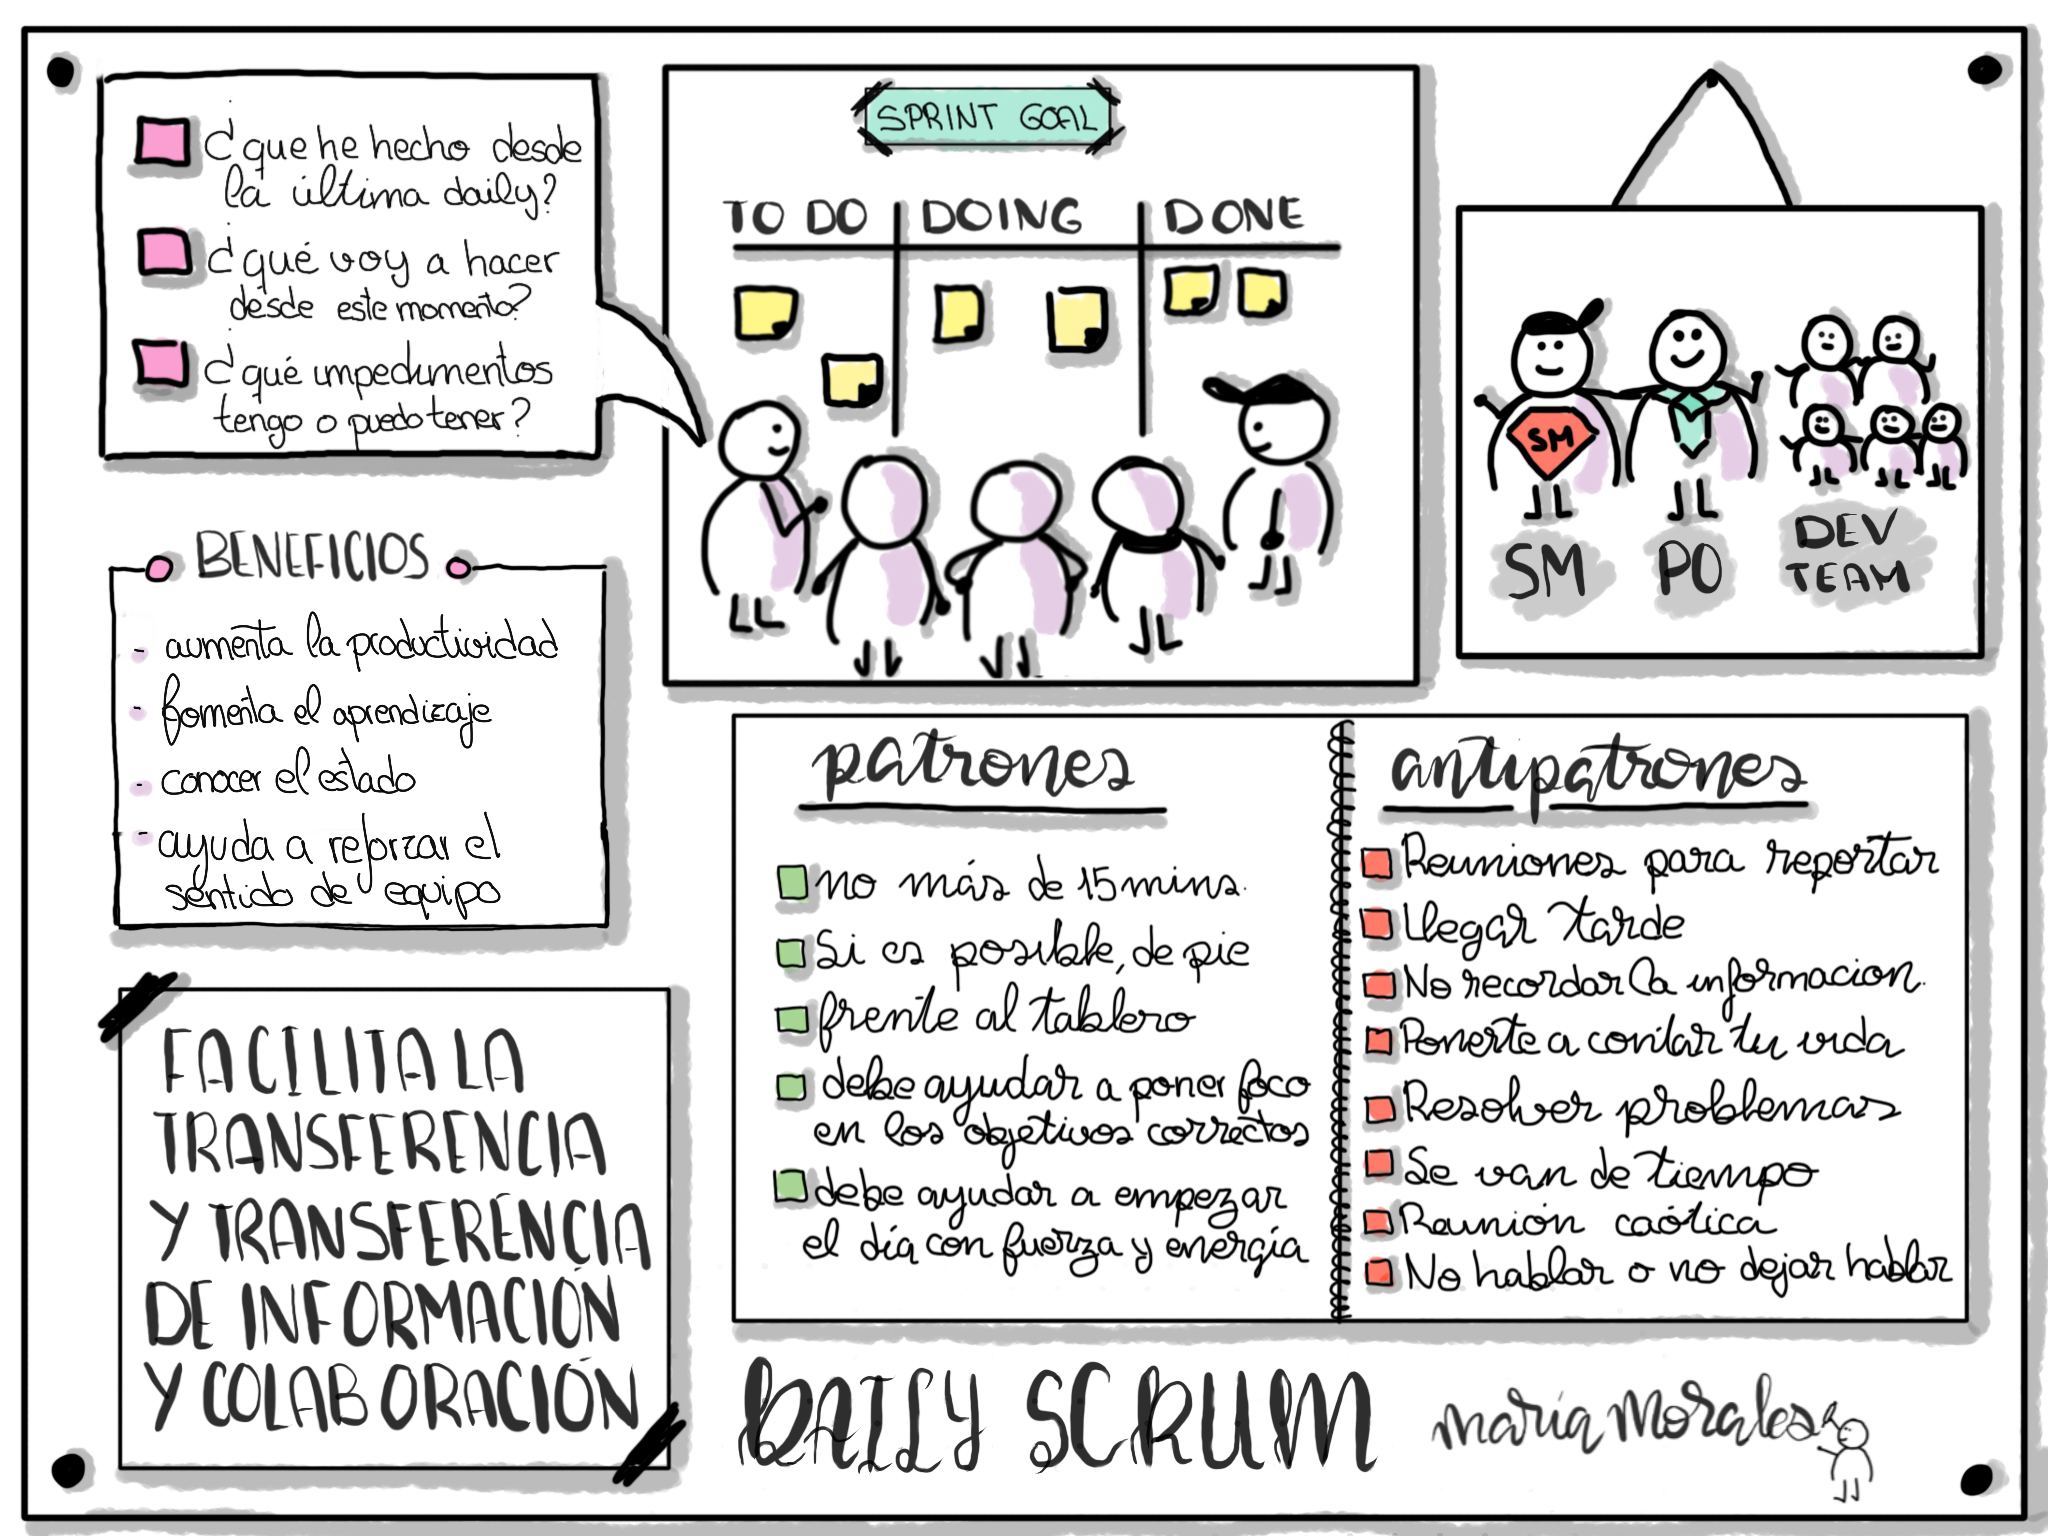 ¿que he hecho desde
la última daily?
¿qué voy a hacer
desde este momento?
¿qué impedimentos
tengo o puedo tener?
SPRINT GOAL
TO DO
DOING
DONE
SM
SM
PO
DEV
TEAM
BENEFICIOS
- aumenta la productividad
- fomenta el aprendizaje
- conocer el estado
- ayuda a reforzar el
sentido de equipo
patrones
no más de 15 mins.
Si es posible, de pie
frente al tablero
debe ayudar a poner foco
en los objetivos correctos
debe ayudar a empezar
el día con fuerza y energía
antipatrones
Reuniones para reportar
Llegar tarde
No recordar la informacion.
Ponerte a contar tu vida
Resolver problemas
Se van de tiempo
Reunión caótica
No hablar o no dejar hablar
FACILITA LA
TRANSFERENCIA
Y TRANSFERENCIA
DE INFORMACIÓN
Y COLABORACIÓN
DAILY SCRUM
maría Morales